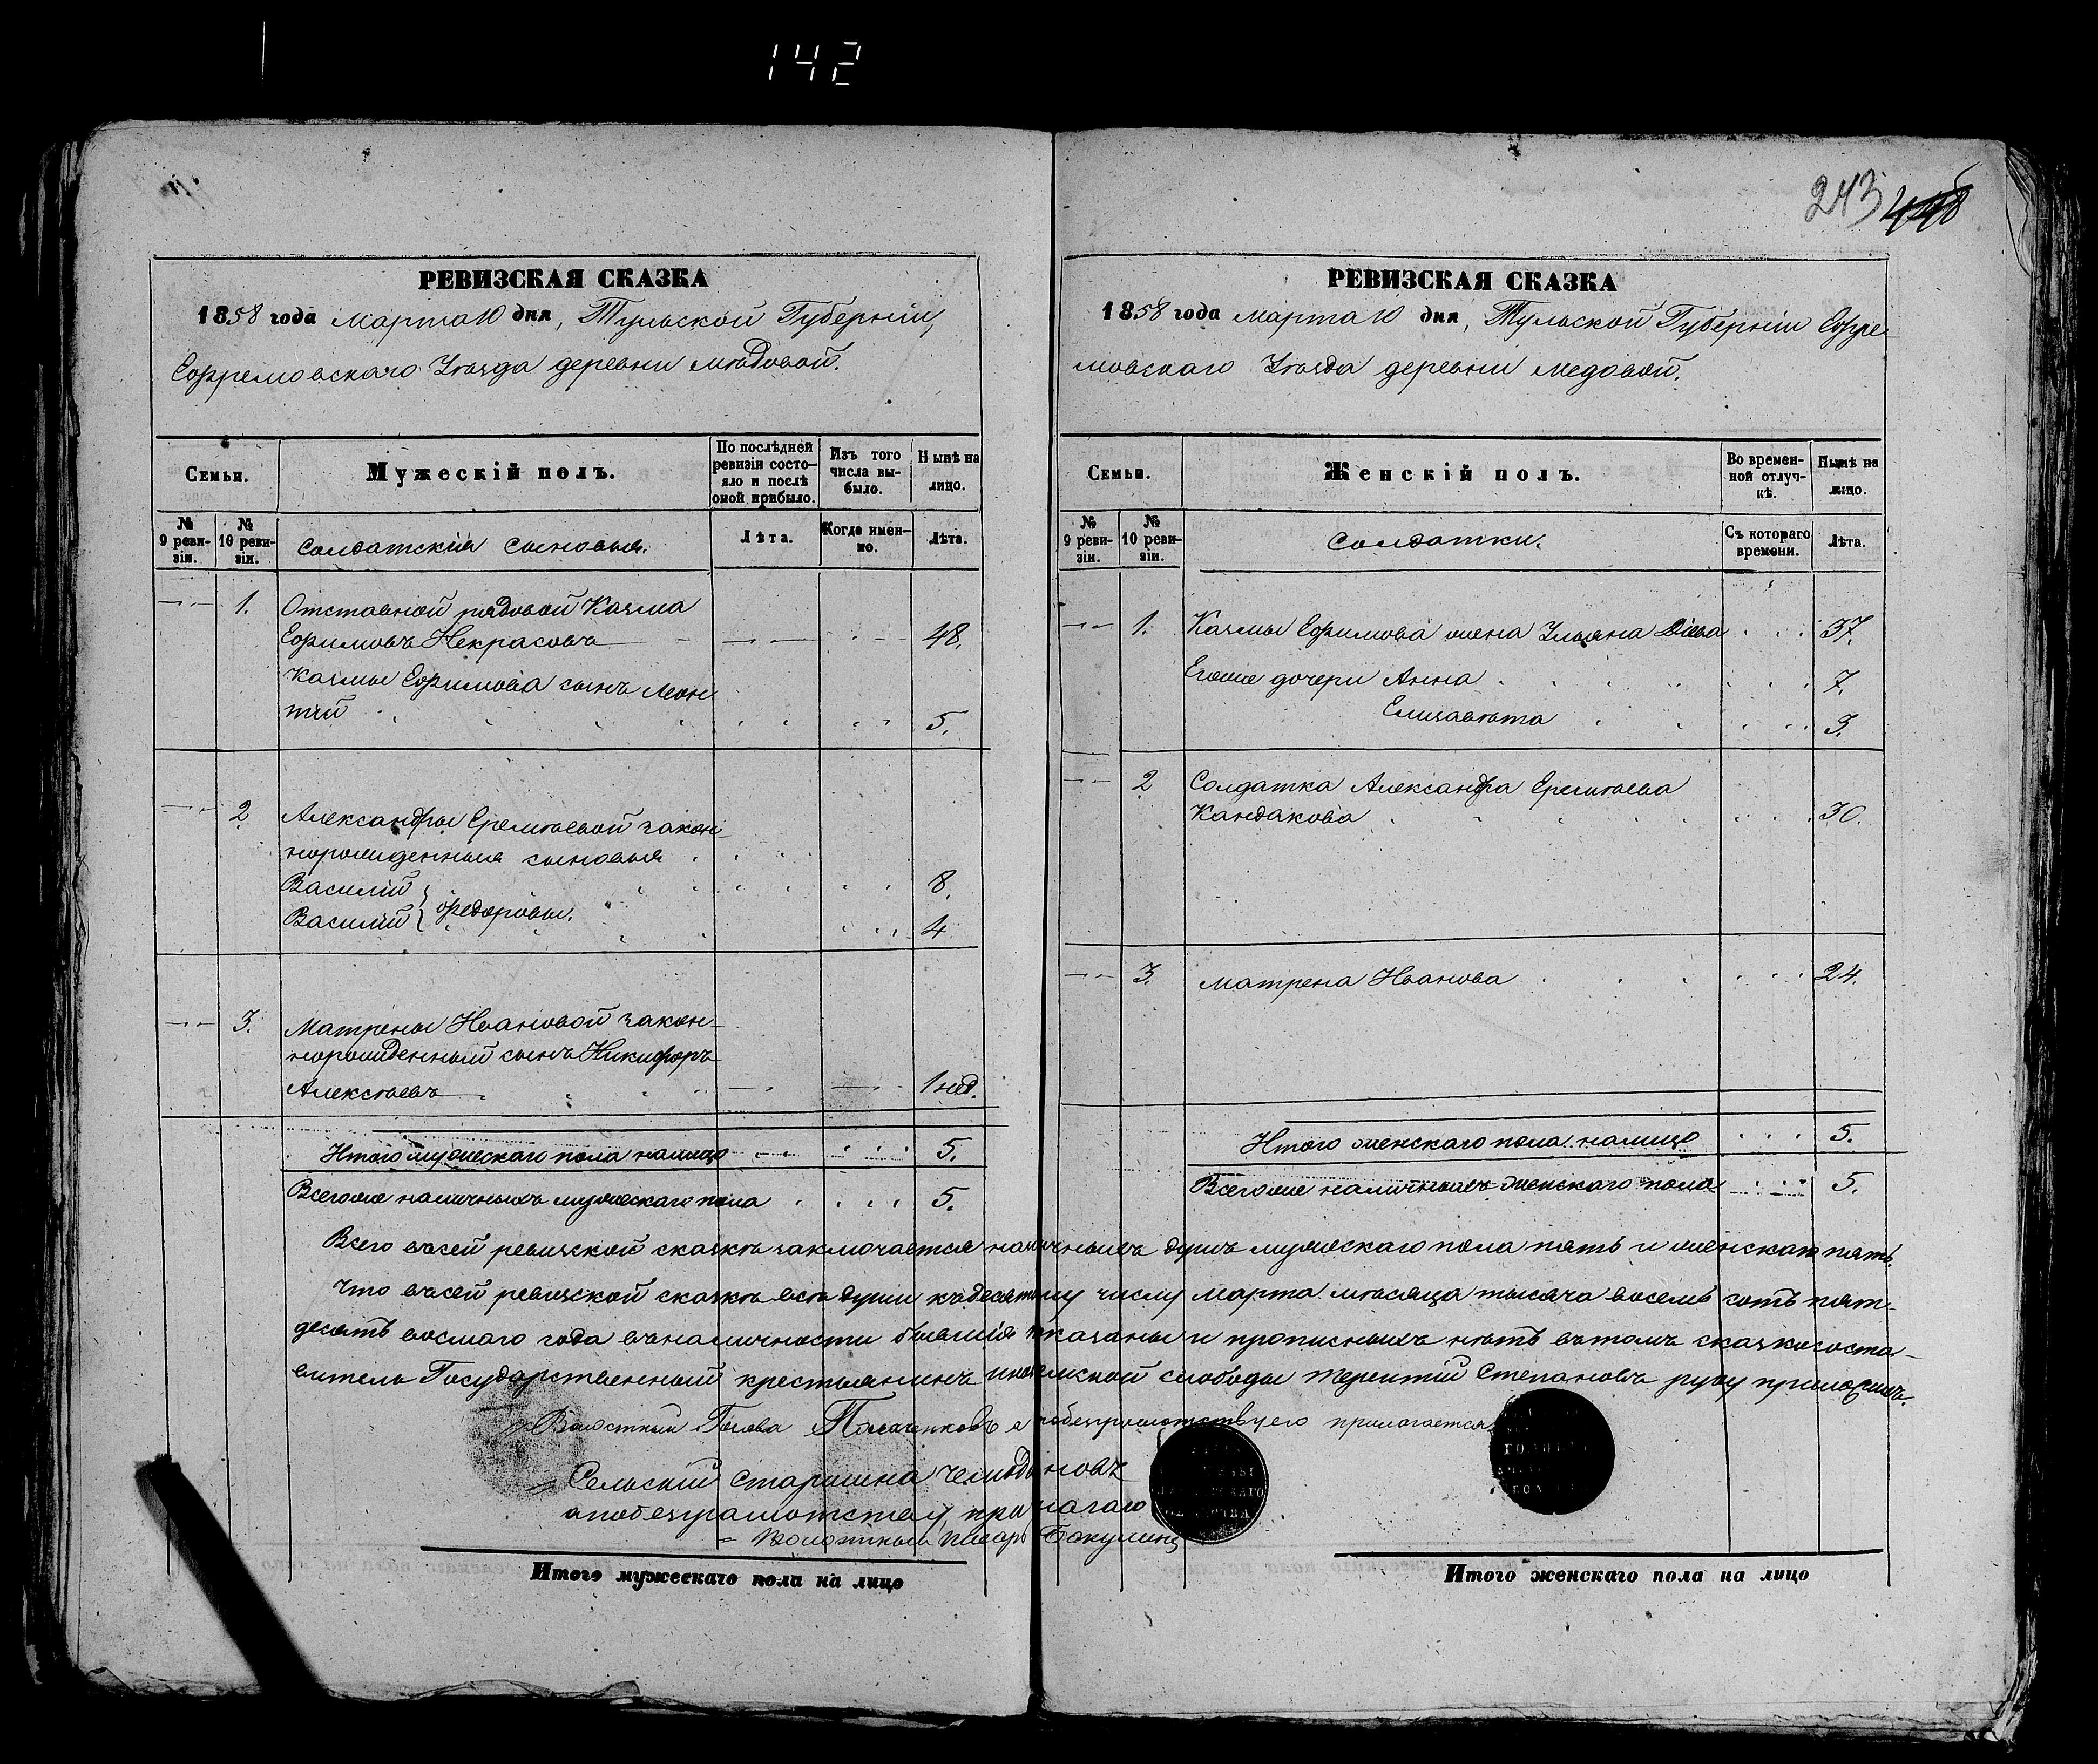 142
243 448
РЕВИЗСКАЯ СКАЗКА
1858 года марта 10 дня, Тульской Губерніи,
Ефремовскаго Уѣзда деревни мѣдовой.
Семьи.
Мужескій полъ.
По послѣдней ревизіи состояло и послѣ оной прибыло.
Изъ того числа выбыло.
Нынѣ на лицо.
№ 9 ревизіи.
№ 10 ревизіи.
Солдатскія сыновья.
Лѣта.
Когда именно.
Лѣта.
1. Отставной рядовой Казма
Ефимовъ Некрасовъ 48.
Казмы Ефимова сынъ Леон
тій 5.
2 Александры Еремѣевой закон-
норожденныя сыновья
Василій 8.
Василій } Федоровы. 4
3. Матрены Ивановой закон-
норожденный сынъ Никифоръ
Алексѣевъ 1 нед.
Итого мужескаго пола налицо 5.
Всегоже наличныхъ мужескаго пола 5.
РЕВИЗСКАЯ СКАЗКА
1858 года марта 10 дня, Тульской Губерніи Ефре-
мовскаго Уѣзда деревни медовой.
Семьи.
Женскій полъ.
Во временной отлучкѣ.
Нынѣ на лицо.
№ 9 ревизіи.
№ 10 ревизіи.
Солдатки.
Съ котораго времени.
Лѣта.
1. Казмы Ефимова жена Ульяна 37.
Егоже дочери Анна 7.
Елизавѣта 3.
2 Солдатка Александра Еремѣева
Кандакова 30.
3. Матрена Иванова 24.
Итого женскаго пола налицо 5.
Всегоже наличныхъ женскаго пола 5.
Всего въсей ревизской сказкѣ заключается наличныхъ душъ мужескаго пола пять и женскаго пять.
Что въсей ревизской сказкѣ всѣ души къдесятому числу марта мѣсяца тысяча восемь сотъ пят-
десятъ восмаго года въналичности бывшія показаны и прописныхъ нѣтъ вътомъ сказкососта-
витель Государственный крестьянинъ слободы Терентій Степановъ руку приложилъ.
Волостный Голова а побезграмотству его прилогается
Сельскій Старшина
апобезграмотству прилагаю
Волостный писарь Бакулинъ
Итого мужескаго пола на лицо
Итого женскаго пола на лицо